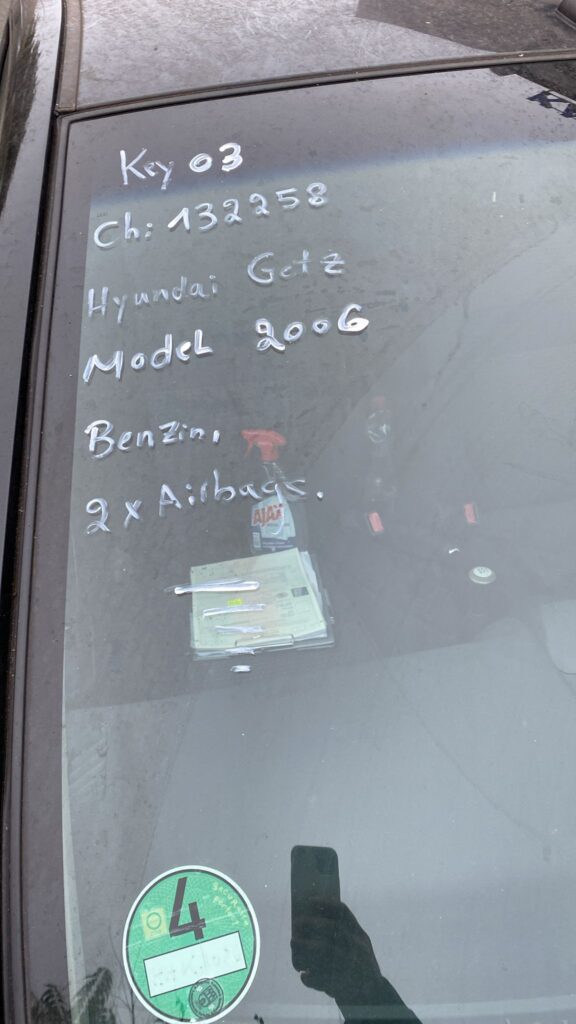 Key 03
Ch: 132258
Hyundai Getz
Model 2006
Benzin,
2 x Airbags.
AJAX
4